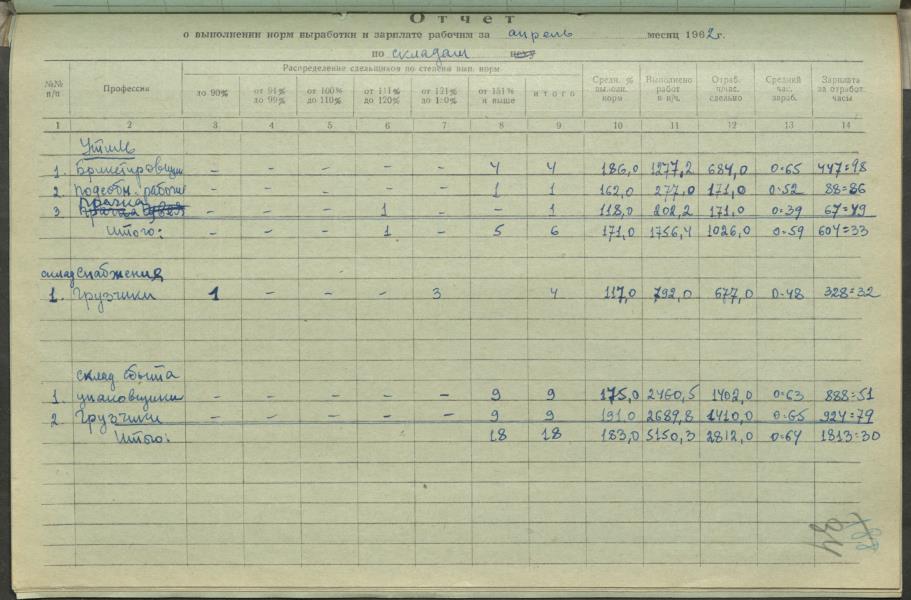 Отчет
о выполнении норм выработки и зарплате рабочим за апрель месяц 1962 г.
по складам цеху
№№ п/п | Профессия | Распределение сдельщиков по степени вып. норм | Средн. % выполн. норм | Выполнено работ в н/ч. | Отраб. ч/час. сдельно | Средний час. зараб. | Зарплата за отработ. часы
до 90% | от 91% до 99% | от 100% до 110% | от 111% до 120% | от 121% до 150% | от 151% и выше | итого
1 | 2 | 3 | 4 | 5 | 6 | 7 | 8 | 9 | 10 | 11 | 12 | 13 | 14
Утиль
1. Брикетировщики - - - - - 4 4 186,0 1277,2 684,0 0-65 447=98
2 подсобн. рабочие - - - - - 1 1 162,0 277,0 171,0 0-52 88=86
прачка
3 - - - 1 - - 1 118,0 202,2 171,0 0-39 67=49
Итого: - - - 1 - 5 6 171,0 1756,4 1026,0 0-59 604=33
склад снабжения
1. Грузчики 1 - - - 3 4 117,0 792,0 677,0 0-48 328=32
склад сбыта
1. упаковщики - - - - - 9 9 175,0 2460,5 1402,0 0-63 888=51
2. Грузчики - - - - - 9 9 191,0 2689,8 1410,0 0-65 924=79
Итого: 18 18 183,0 5150,3 2812,0 0-64 1813=30